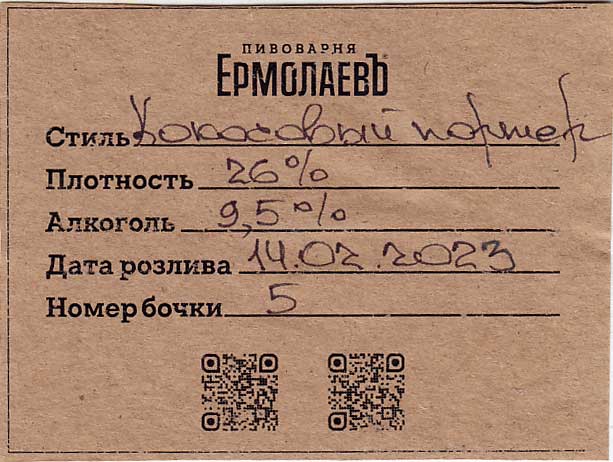 ПИВОВАРНЯ
ЕРМОЛАЕВЪ
Стиль Кокосовый портер
Плотность 26%
Алкоголь 9,5%
Дата розлива 14.02.2023
Номер бочки 5